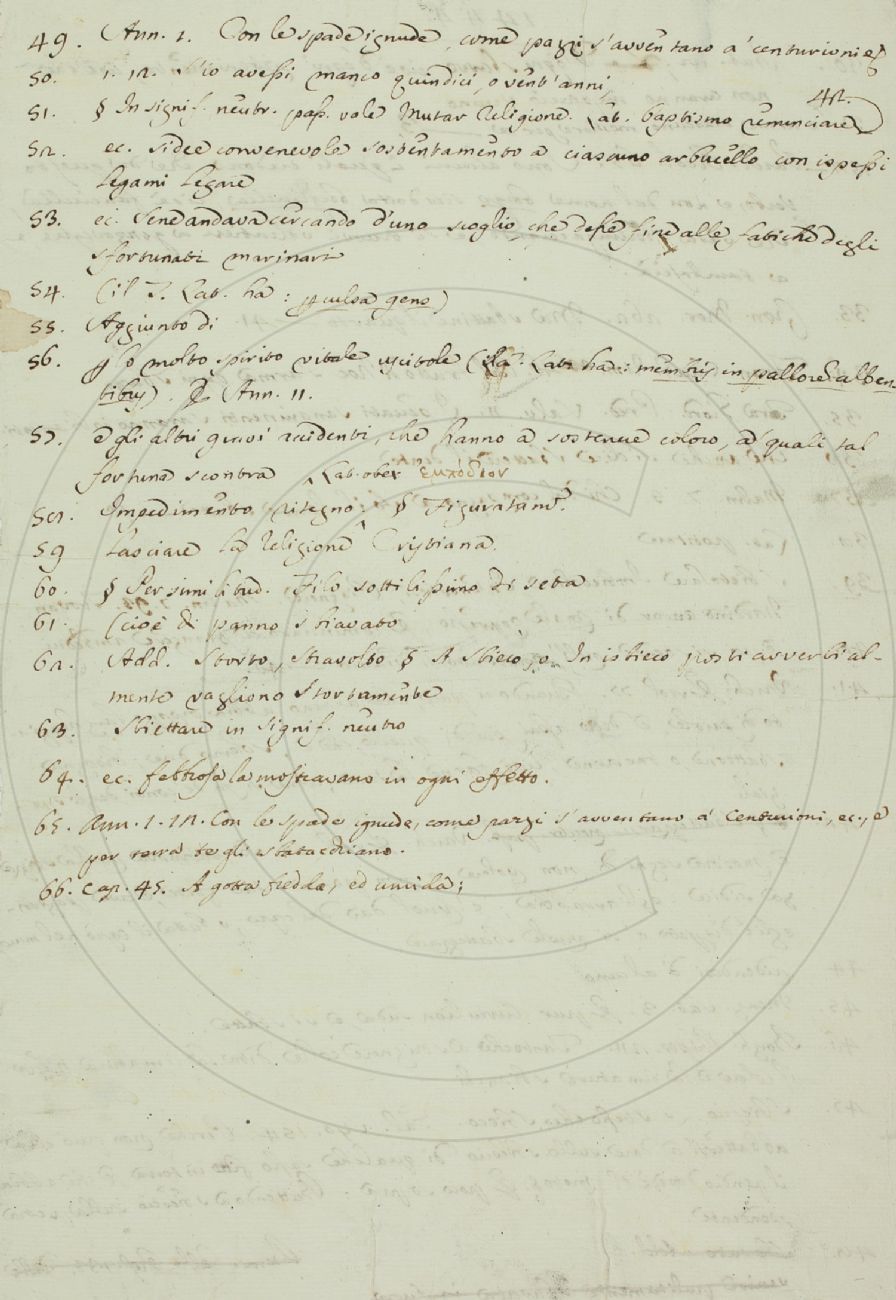 49. Ann. 1. Con le spade ignude, come pazzi s'avventano a' centurioni e§
50. 1. 12. S'io avessi manco quindici, o vent'anni,
42.
51. § In signif. neutr. pass. vale Mutar Religione. Lat. baptismo renunciare
52. ec. si dee convenevole sostentamento a ciascuno arbucello con ispessi
legami legare
53. ec. Sene andava cercando d'uno scoglio, che desse fine alle fatiche degli
sfortunati marinari
54. (il T. Lat. ha: culsa gens)
55. Aggiunto di
56. lo molto spirito vitale uscitole ( Lat. ha: membris in pallore alben-
tibus). Ann. 11.
57. e gli altri gravi accidenti, che hanno a sostenere coloro, a' quali tal
fortuna scontra Lat. obex
58. Impedimento, ritegno. § Figuratam.
59 Lasciare la Religione Cristiana.
60. § Per simulitud. Filo sottilissimo di seta
61. (cioè di panno stiavato
62. Add. Storto, stravolto § A sbieco, o In isbieco posti avverbial-
mente vagliono Stortamente
63. Sbiettare in signif. neutro
64. ec. febbrosa la mostravano in ogni effetto.
65. Ann. 1. 12. Con le spade ignude, come pazzi s'avventano a' Centurioni, ec., e
per terra te gli sbatacchiano.
66. Cap. 45. A gotta fredda, ed umida;